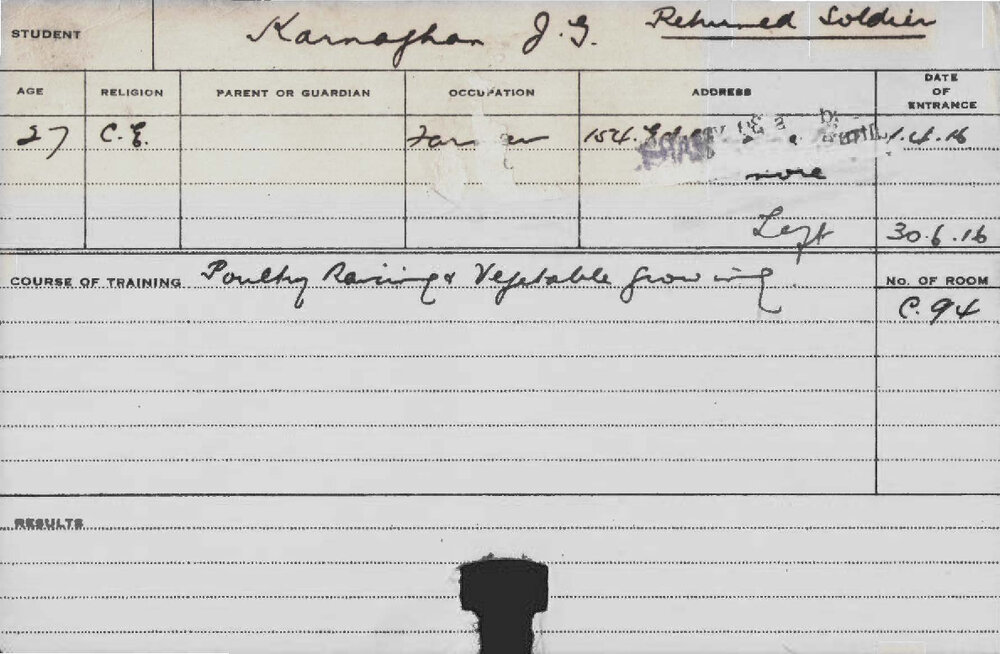 STUDENT Karnaghan J. G. Returned Soldier
AGE RELIGION PARENT OR GUARDIAN OCCUPATION ADDRESS DATE OF ENTRANCE
27 C.E. Farmer 154. 1.4.16
more
Left 30.6.16
COURSE OF TRAINING Poultry Raising & Vegetable growing No. OF ROOM
C.94
RESULTS